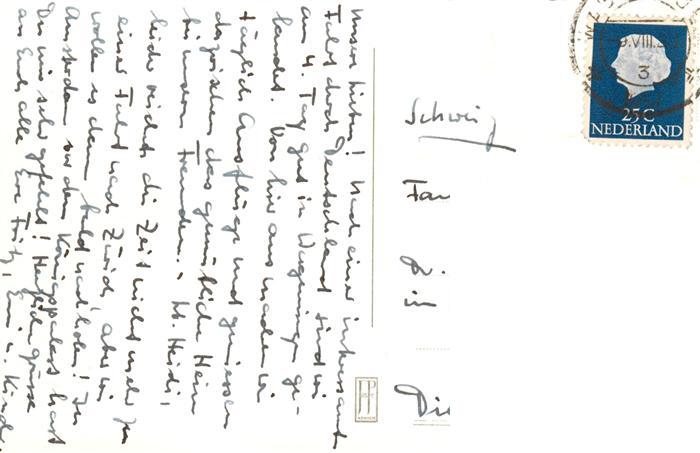 Unsere Lieben! Nach einer interessanten
Fahrt durch Deutschland sind wir
am 4. Tag gut in Wageningen ge-
landet. Von hier aus machen wir
täglich Ausflüge und geniessen
dazwischen das gemütliche Heim
bei unsern Freunden. - Lb. Heidi,
leider reichte die Zeit nicht mehr zu
einer Fahrt nach Zürich, aber wir
wollen es dann bald nachholen! In
Amsterdam vor dem Königspalast hast
Du uns sehr gefehlt! Herzliche Grüsse
an Euch alle Eure Fritz, u. Kinder.
Schweiz
Fam
in
Die
25C
NEDERLAND
VIII
3
JP